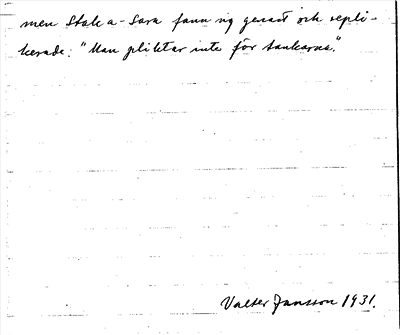 men Staka-Sara fann sig genast och repli-
kerade: "Man pliktar inte för tankarna."
Valter Jansson 1931.